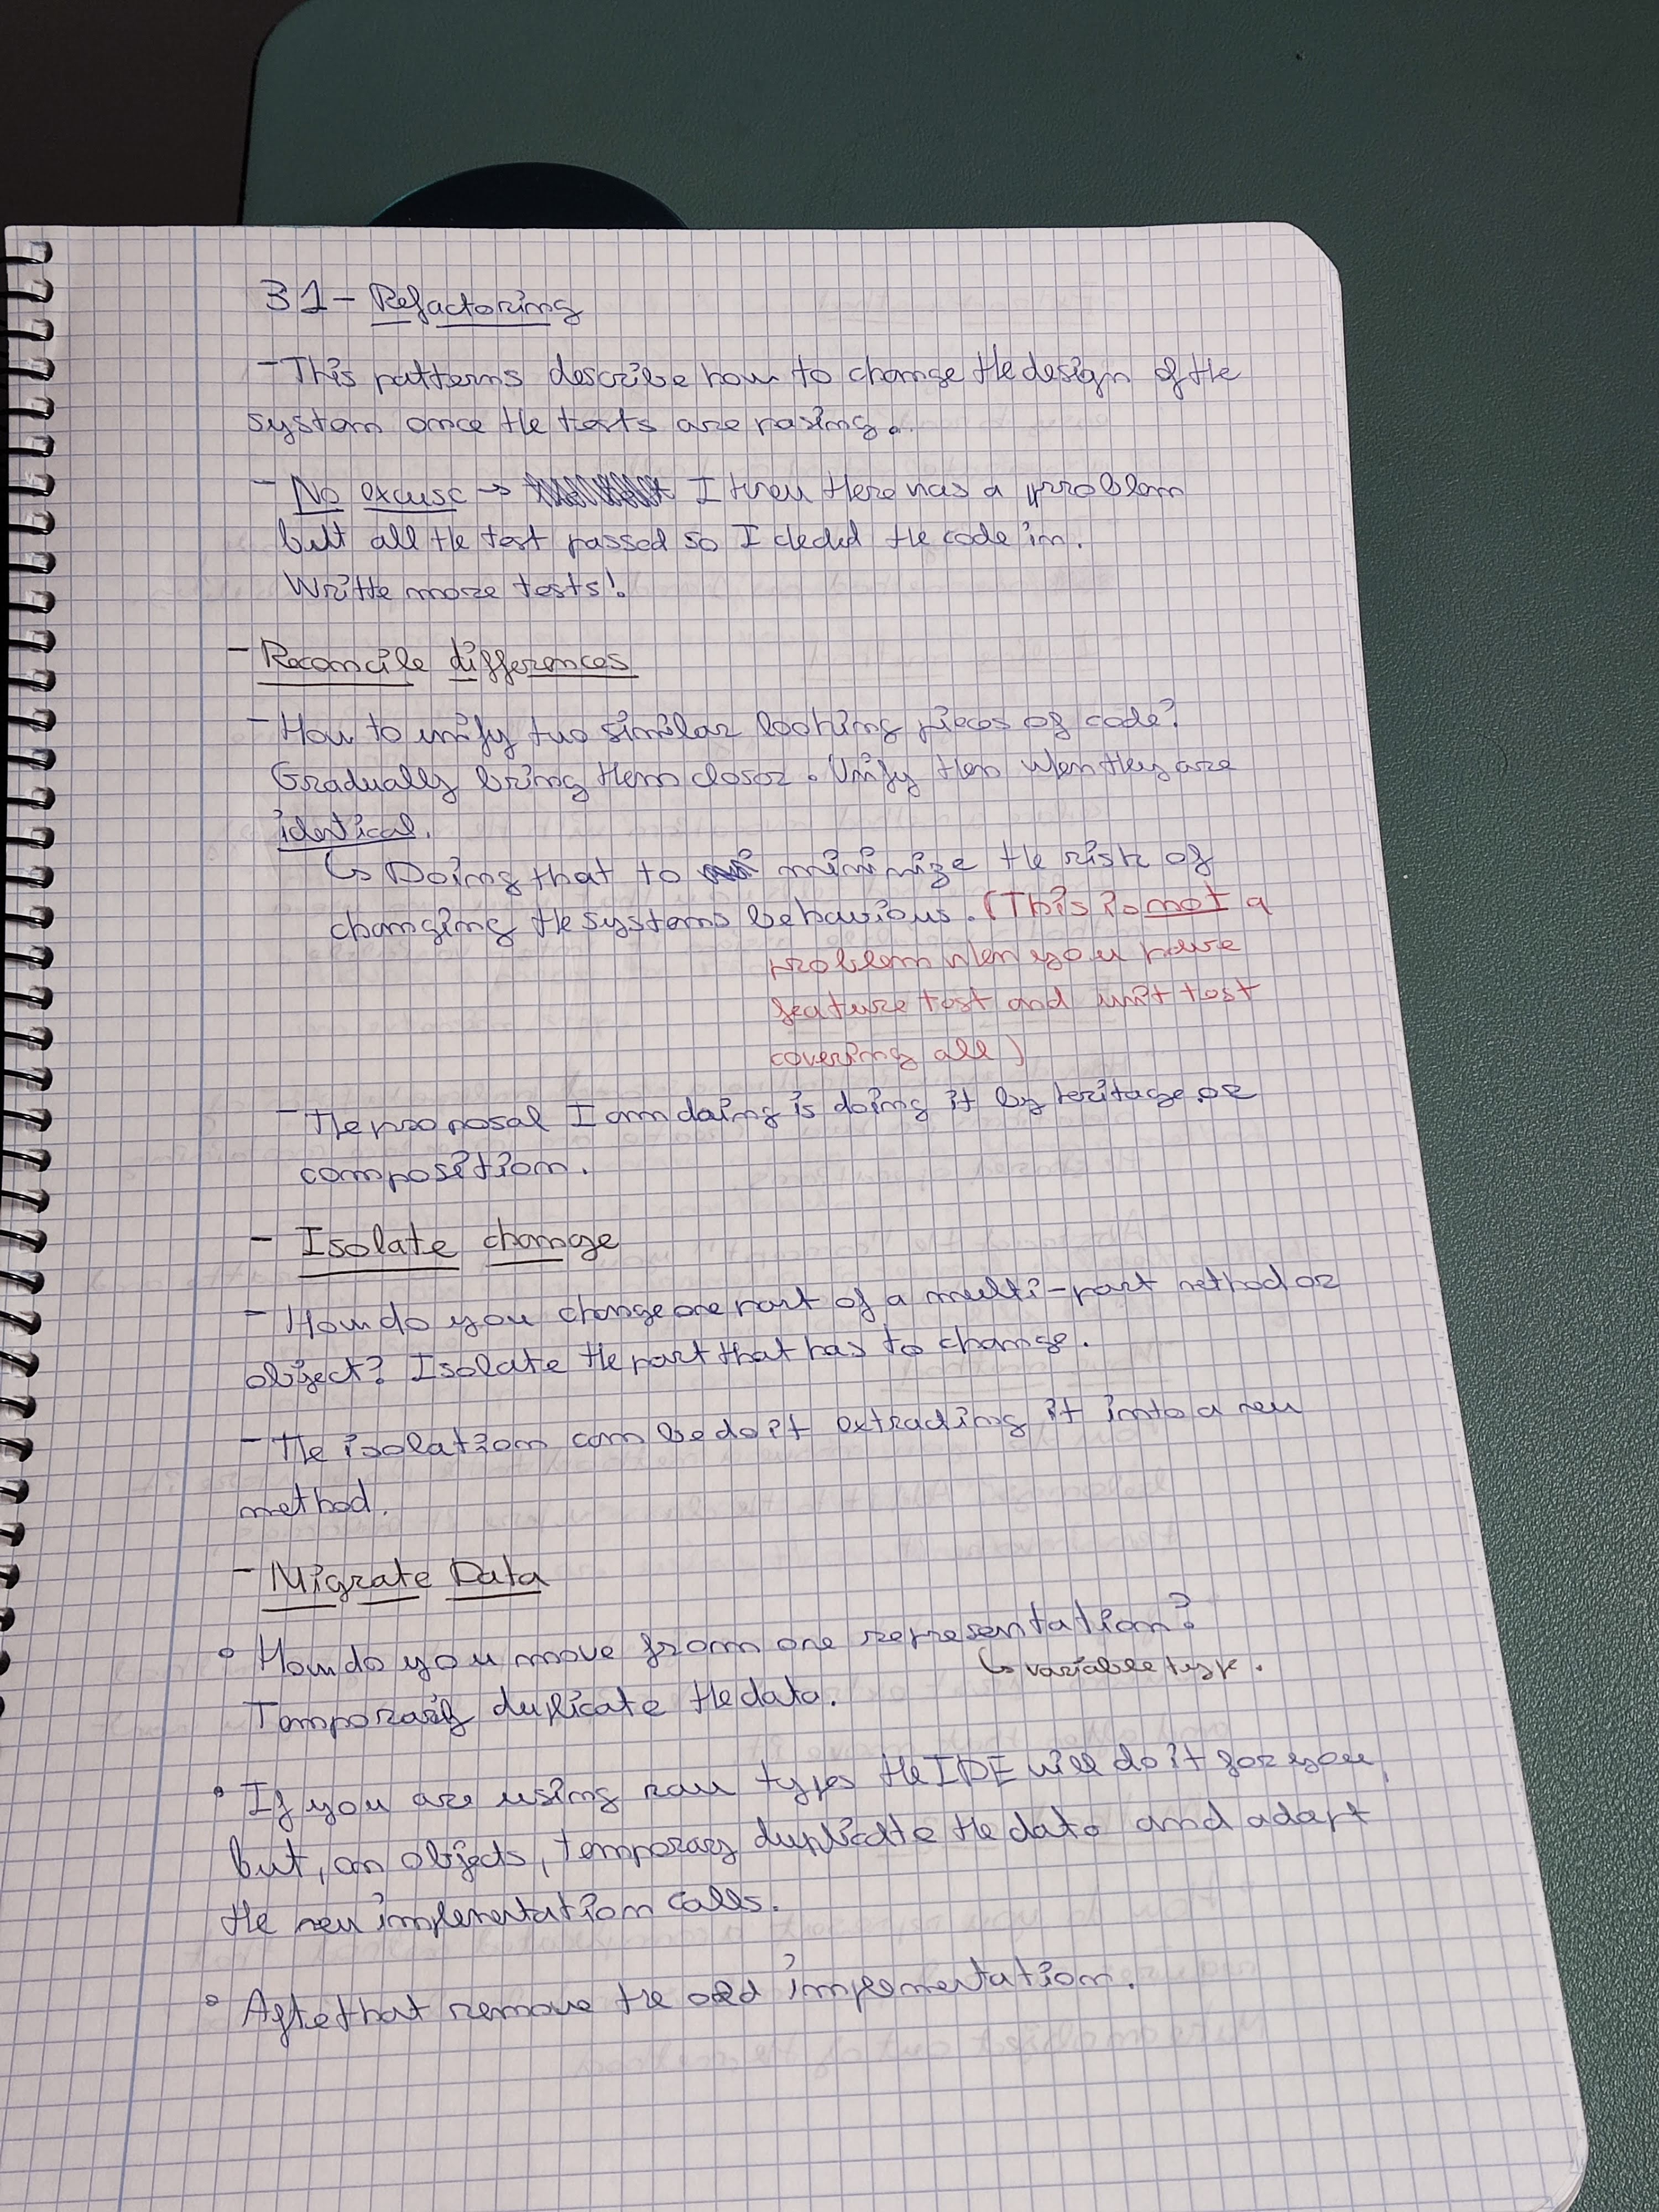 31 - Refactoring
- This patterns describe how to change the design of the
system once the tests are pasing.
- No excuse → I knew there was a problem
but all the test passed so I cheked the code in.
Writte more tests!
- Reconcile differences
- How to unify two similar looking pieces of code?
Gradually bring them closer. Unify then when they are
identical.
↳ Doing that to minimize the risk of
changing the systems behaviour. (This is not a
problem when you have
feature test and unit test
covering all)
- The proposal I am doing is doing it by heritage or
composition.
- Isolate change
- How do you change one part of a multi-part method or
object? Isolate the part that has to change.
- The isolation can be do it extracting it into a new
method.
- Migrate Data
• How do you move from one representation?
↳ variable type.
Temporarily duplicate the data.
• If you are using raw types the IDE will do it for you,
but, on objects, temporary duplicate the data and adapt
the new implementation calls.
• After that remove the old implementation.